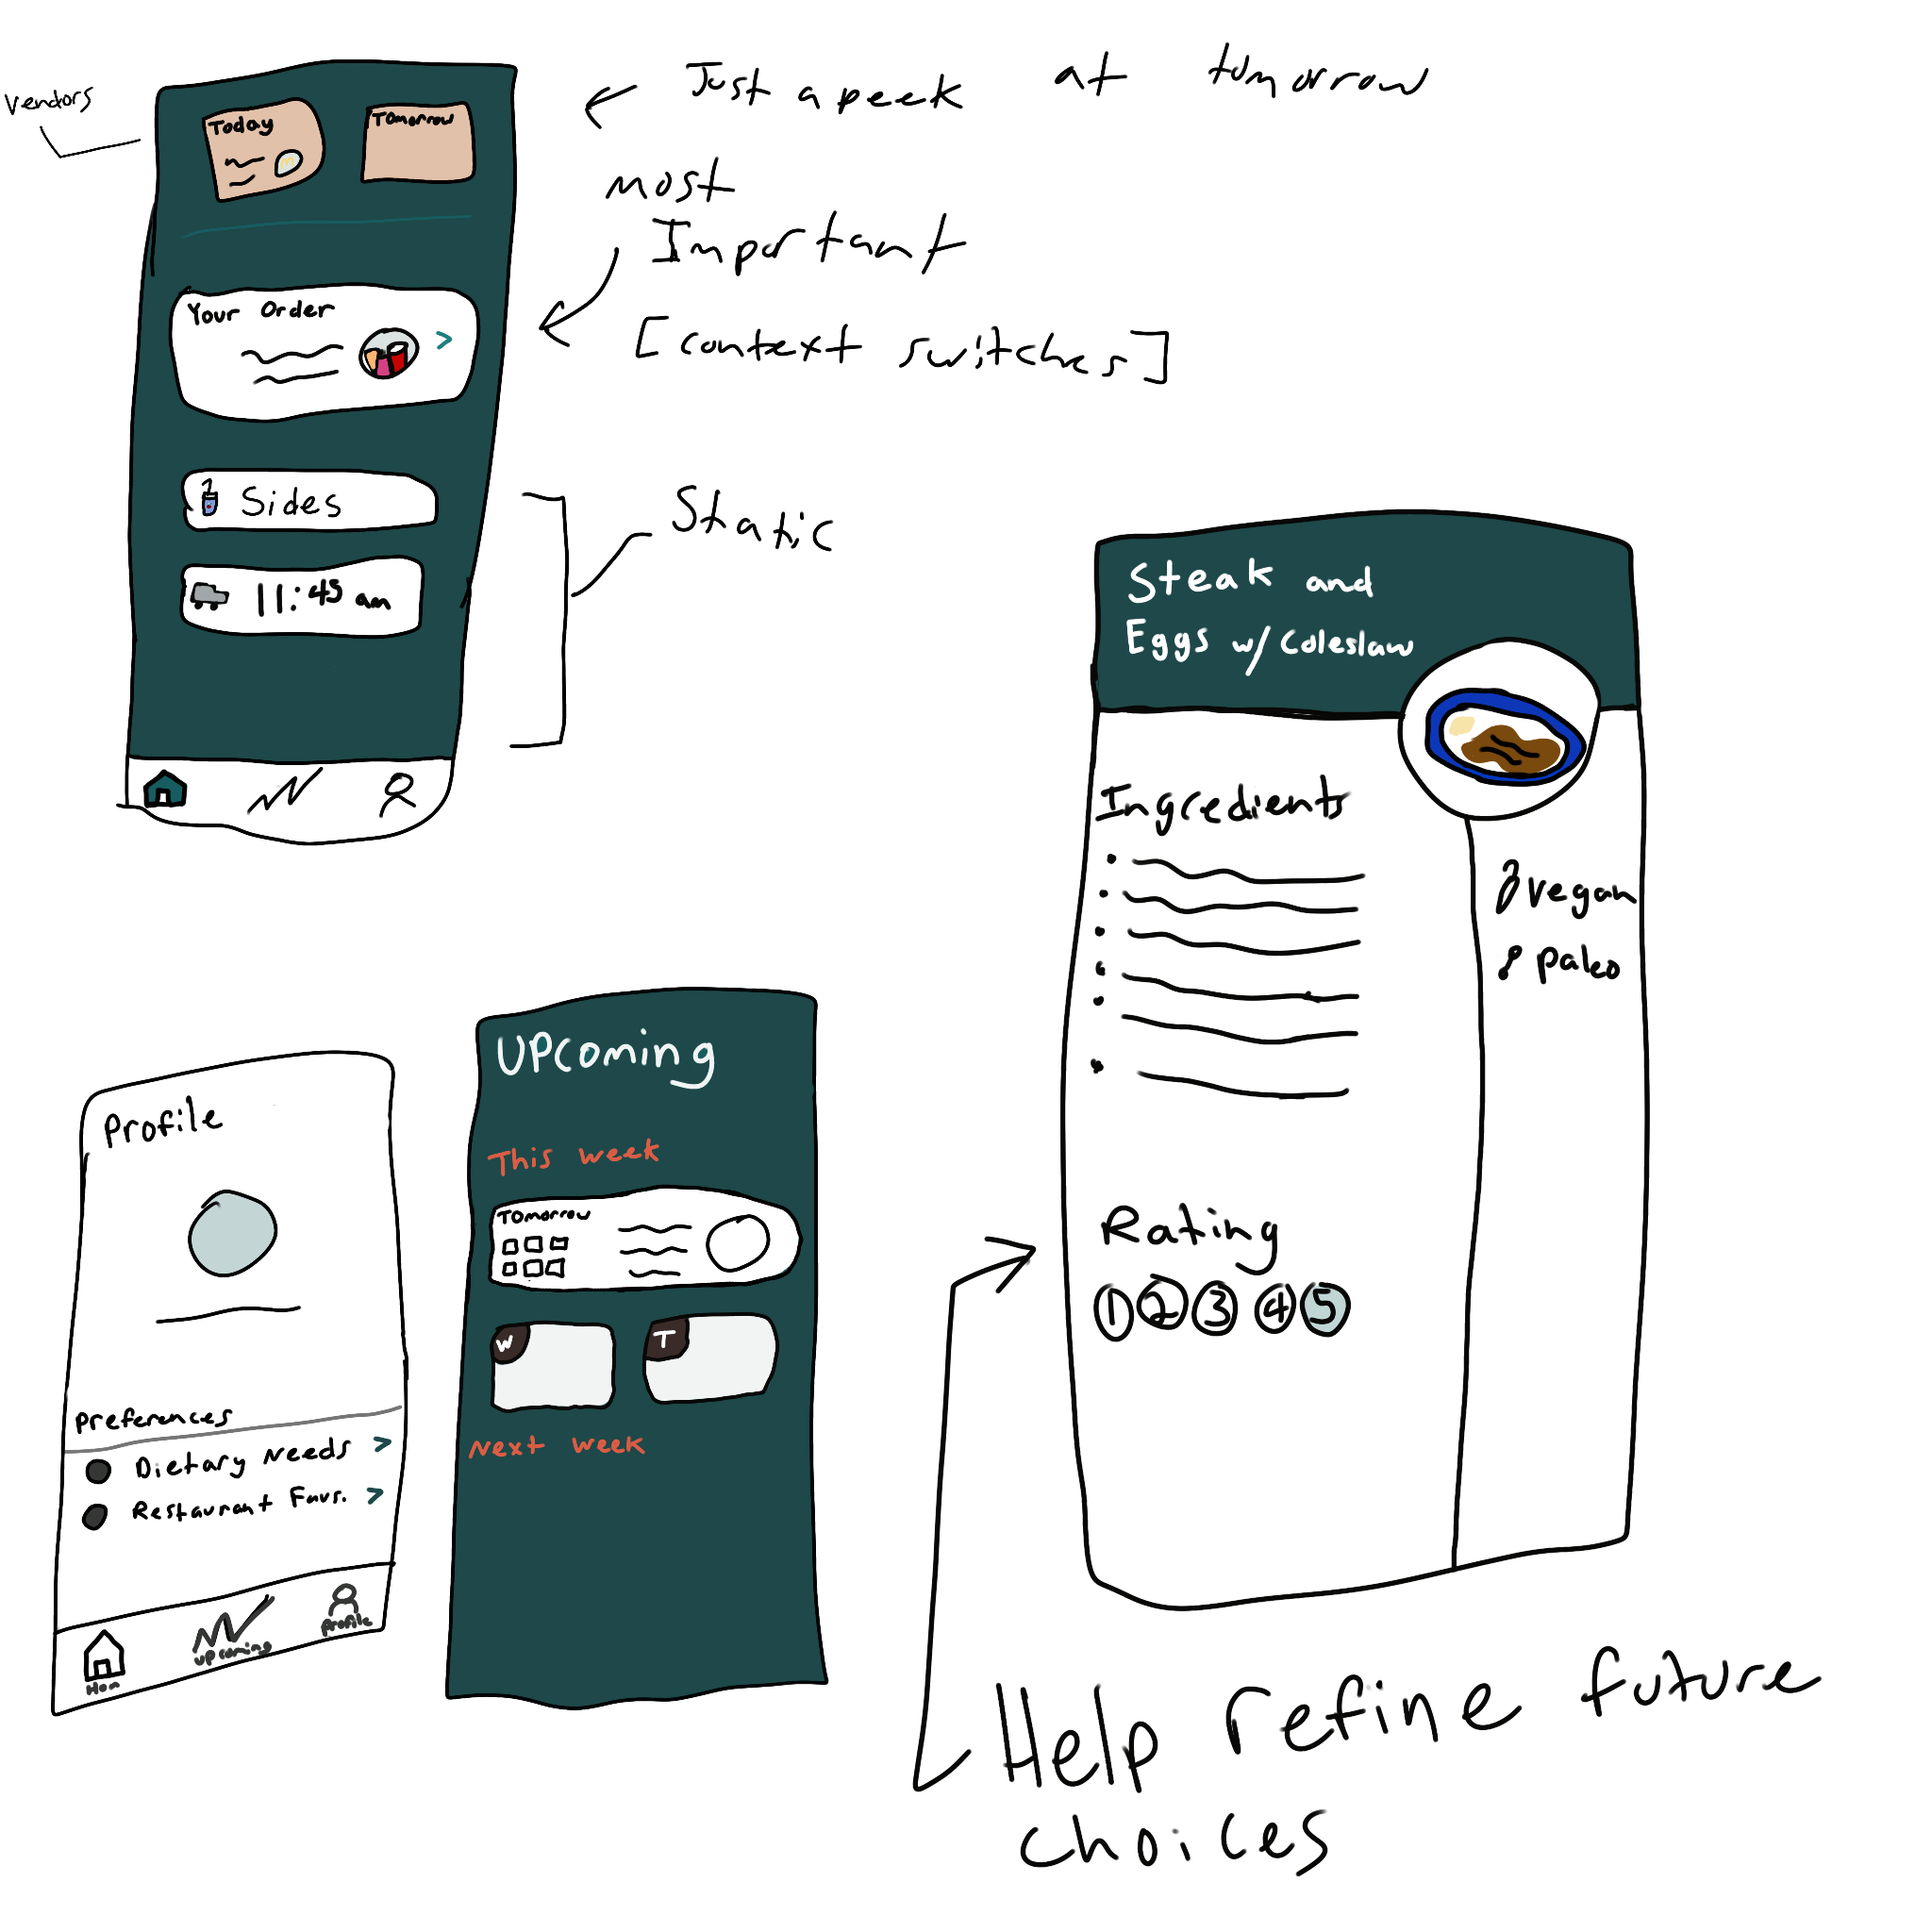 vendors
Today
Tomorrow
← Just a peek at tomorrow
most
Important
[context switches]
Your Order
>
Sides
11:45 am
Static
Steak and
Eggs w/ Coleslaw
Ingredients
vegan
paleo
Rating
1 2 3 4 5
Profile
Preferences
Dietary Needs >
Restaurant Favs. >
Hom
upcoming
profile
UPcoming
This week
Tomorrow
W
T
Next week
Help refine future
choices